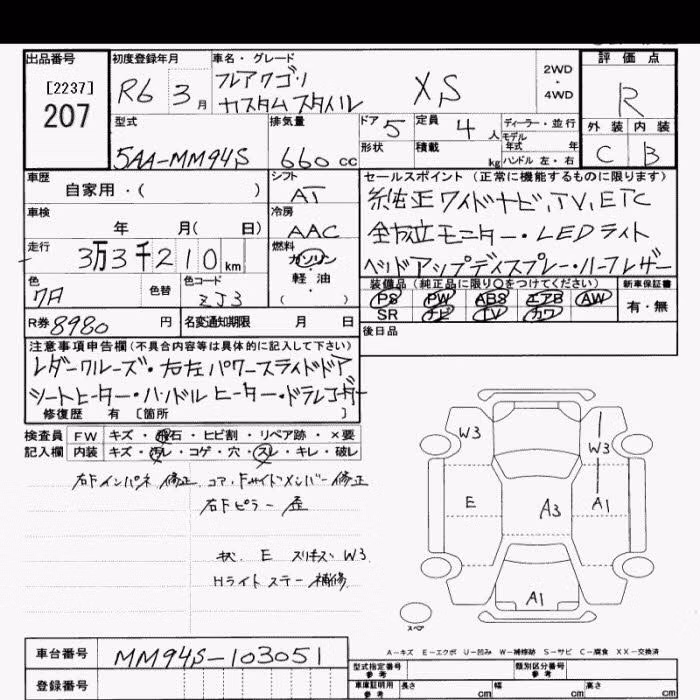 出品番号 初度登録年月 車名・グレード 評価点
[2237]
207
R6 3月 フレアワゴン XS 2WD・4WD R
カスタムスタイル
外装 内装
C B
型式 排気量 ドア 定員 ディーラー・並行
5AA-MM94S 660cc 5 4人 モデル年式 年
形状 積載 kg ハンドル 左・右
車歴 シフト セールスポイント(正常に機能するものに限ります)
自家用・( ) AT 純正ワイドナビ、TV、ETC
車検 冷房 全方位モニター・LEDライト
年 月( 日) AAC
走行 燃料 ヘッドアップディスプレー・ハーフレザー
3万3千210km ガソリン・軽油・( )
色 色替 色コード 装備品(純正品に限り○をつけてください) 新車保証書
ZJ3 PS PW ABS エアB AW 有・無
R券 8980円 名変通知期限 月 日 SR ナビ TV カワ
後日品
注意事項申告欄(不具合内容等は具体的に記入して下さい)
レダークルーズ・右左パワースライドドア
シートヒーター・ハンドルヒーター・ドラレコーダー
修復歴 有 [箇所 ]
検査員 FW キズ・飛石・ヒビ割・リペア跡・×要
記入欄 内装 キズ・汚レ・コゲ・穴・スレ・キレ・破レ
右Fインパネ 修正 コア・Fサイドメンバー 修正
右Fピラー 歪
E スリキズ W3
Hライトステー 補修
W3 W3
E A3 A1
A1
スペア
A-キズ E-エクボ U-凹み W-補修跡 S-サビ C-腐食 XX-交換済
車台番号 MM94S-103051 型式指定番号 参考 類別区分番号 参考
登録番号 車庫証明用 参考 長さ cm 幅 cm 高さ cm